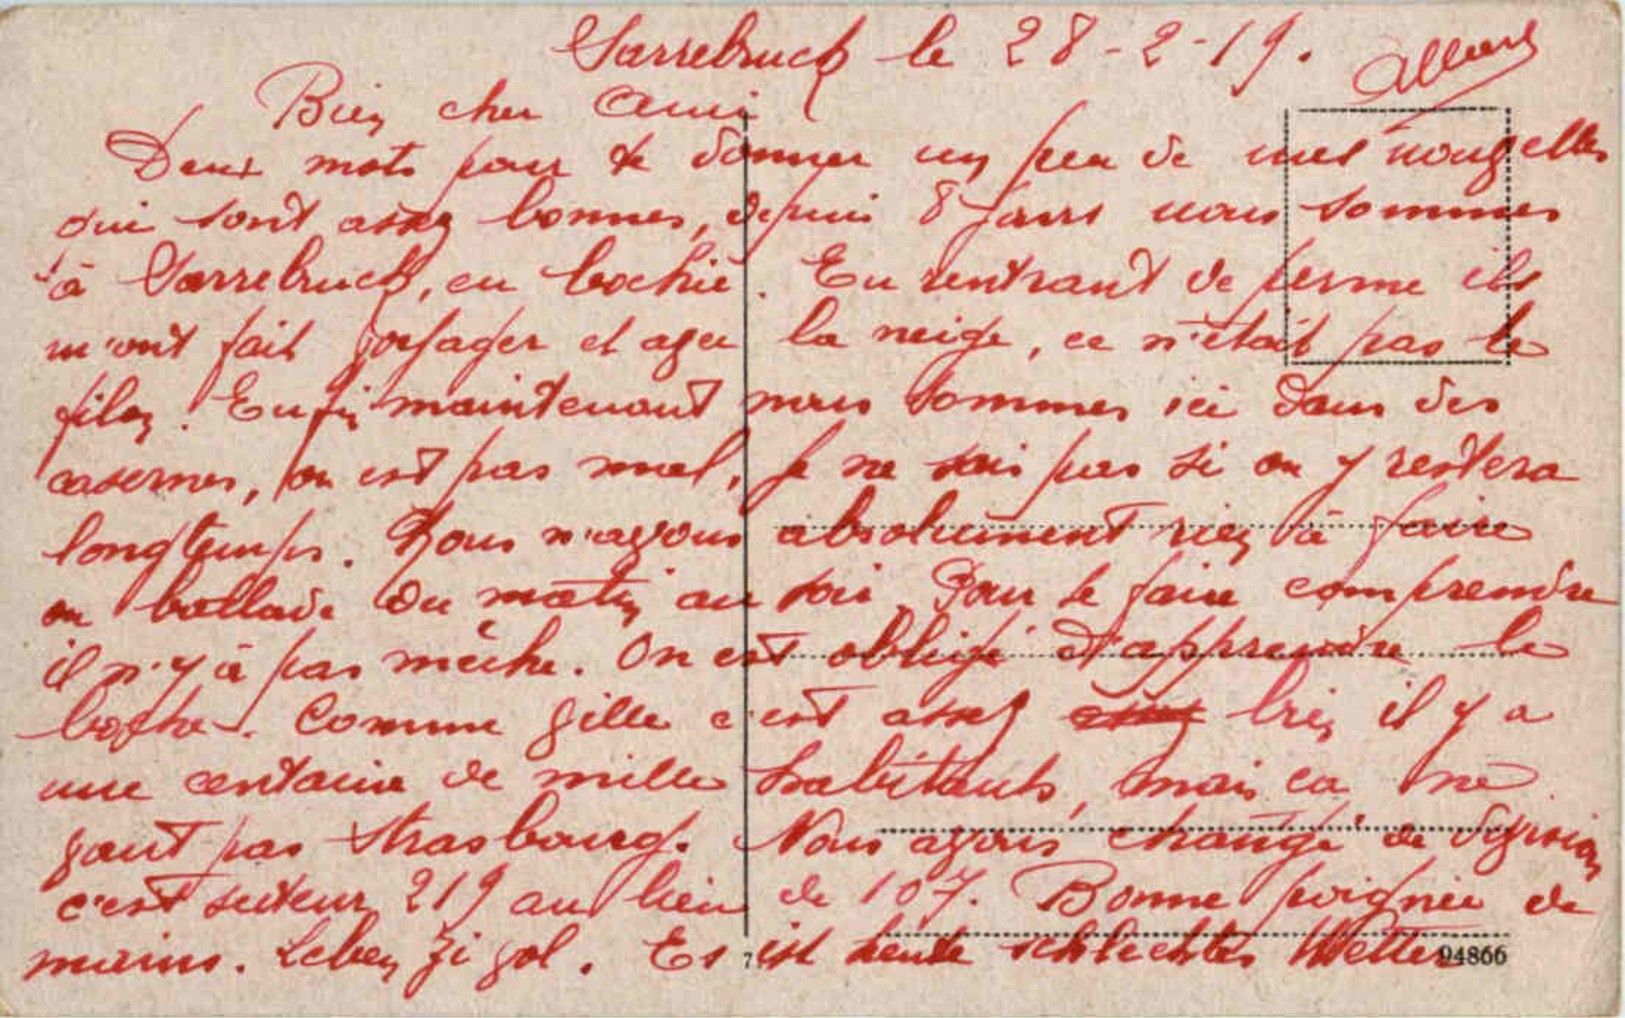 Sarrebruck le 28-2-19.
Albert
Bien cher Ami
Deux mots pour te donner un peu de mes nouvelles
qui sont assez bonnes, depuis 8 jours nous sommes
à Sarrebruck, en bochie. En rentrant de perme ils
m'ont fait voyager et avec la neige, ce n'était pas le
filon. Enfin maintenant nous sommes ici dans des
casernes, on est pas mal, je ne sais pas si on y restera
longtemps. Nous n'avons absolument rien à faire
on ballade du matin au soir. Pour se faire comprendre
il n'y à pas mèche. On est obligé d'apprendre le
boche. Comme ville c'est assez bien il y a
une centaine de mille habitants, mais ca ne
vaut pas Strasbourg. Nous avons changé de division
c'est secteur 219 au lieu de 107. Bonne poignée de
mains. Leben zi vol. Es ist heute schlechtes Wetter
7. 94866